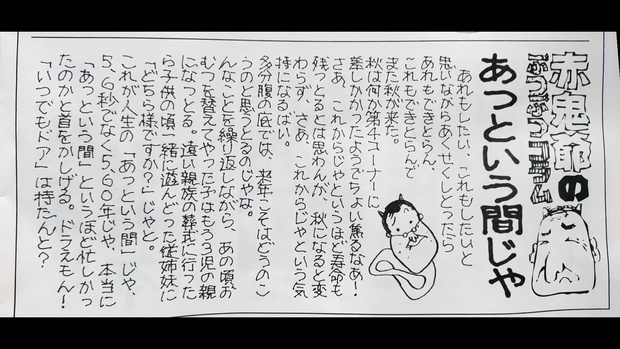 赤鬼爺の
ぶつぶつコラム
あっという間じゃ
あれもしたい、これもしたいと
思いながらあくせくしとったら
あれもできとらん
これもできとらんで
また秋が来た。
秋は何か第4コーナーに
差しかかったようでちょい焦るなあ!
さあ、これからじゃというほど寿命も
残っとるとは思わんが、秋になると変
わらず、さあ、これからじゃという気
持になるばい。
多分腹の底では、来年こそはどうのこ
うのと思うとるのじゃな。
んなことを繰り返しながら、あの頃お
むつを替えてやった子はもう3児の親
になっとる。遠い親族の葬式に行った
ら子供の頃一緒に遊んどった従姉妹に
「どちら様ですか?」じゃと。
これが人生の「あっという間」じゃ、
5、6秒でなく5、60年じゃ、本当に
「あっという間」というほど忙しかっ
たのかと首をかしげる。ドラえもん!
「いつでもドア」は持たんと?